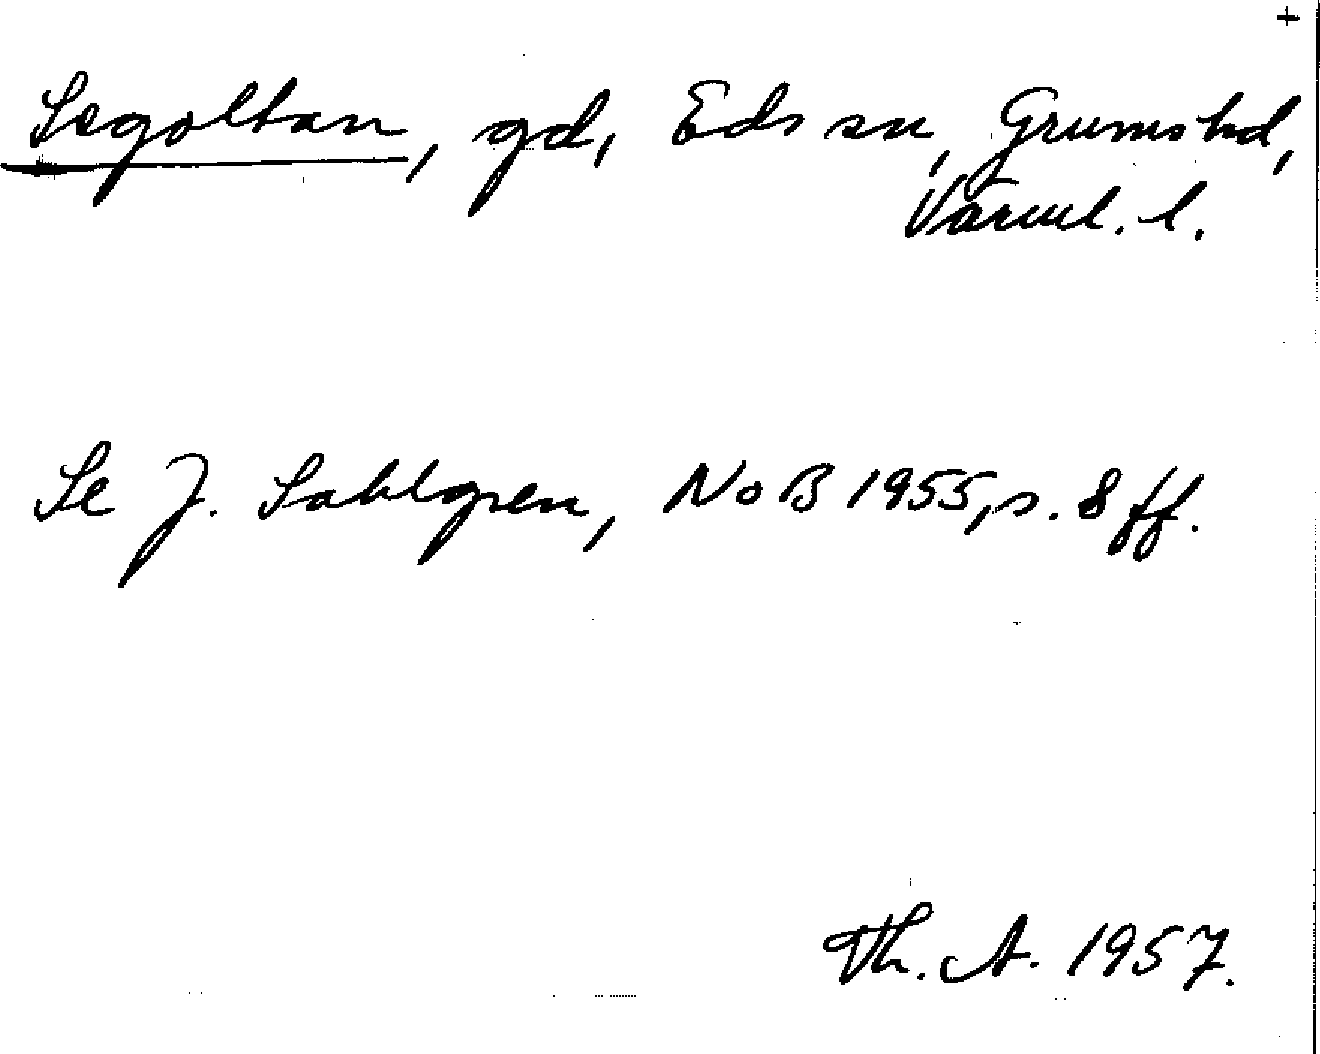 +
Segoltan, gd, Eds sn, Grums hd,
Värml. l.
Se J. Sahlgren, NoB 1955, s. 8 ff.
Th. A. 1957.